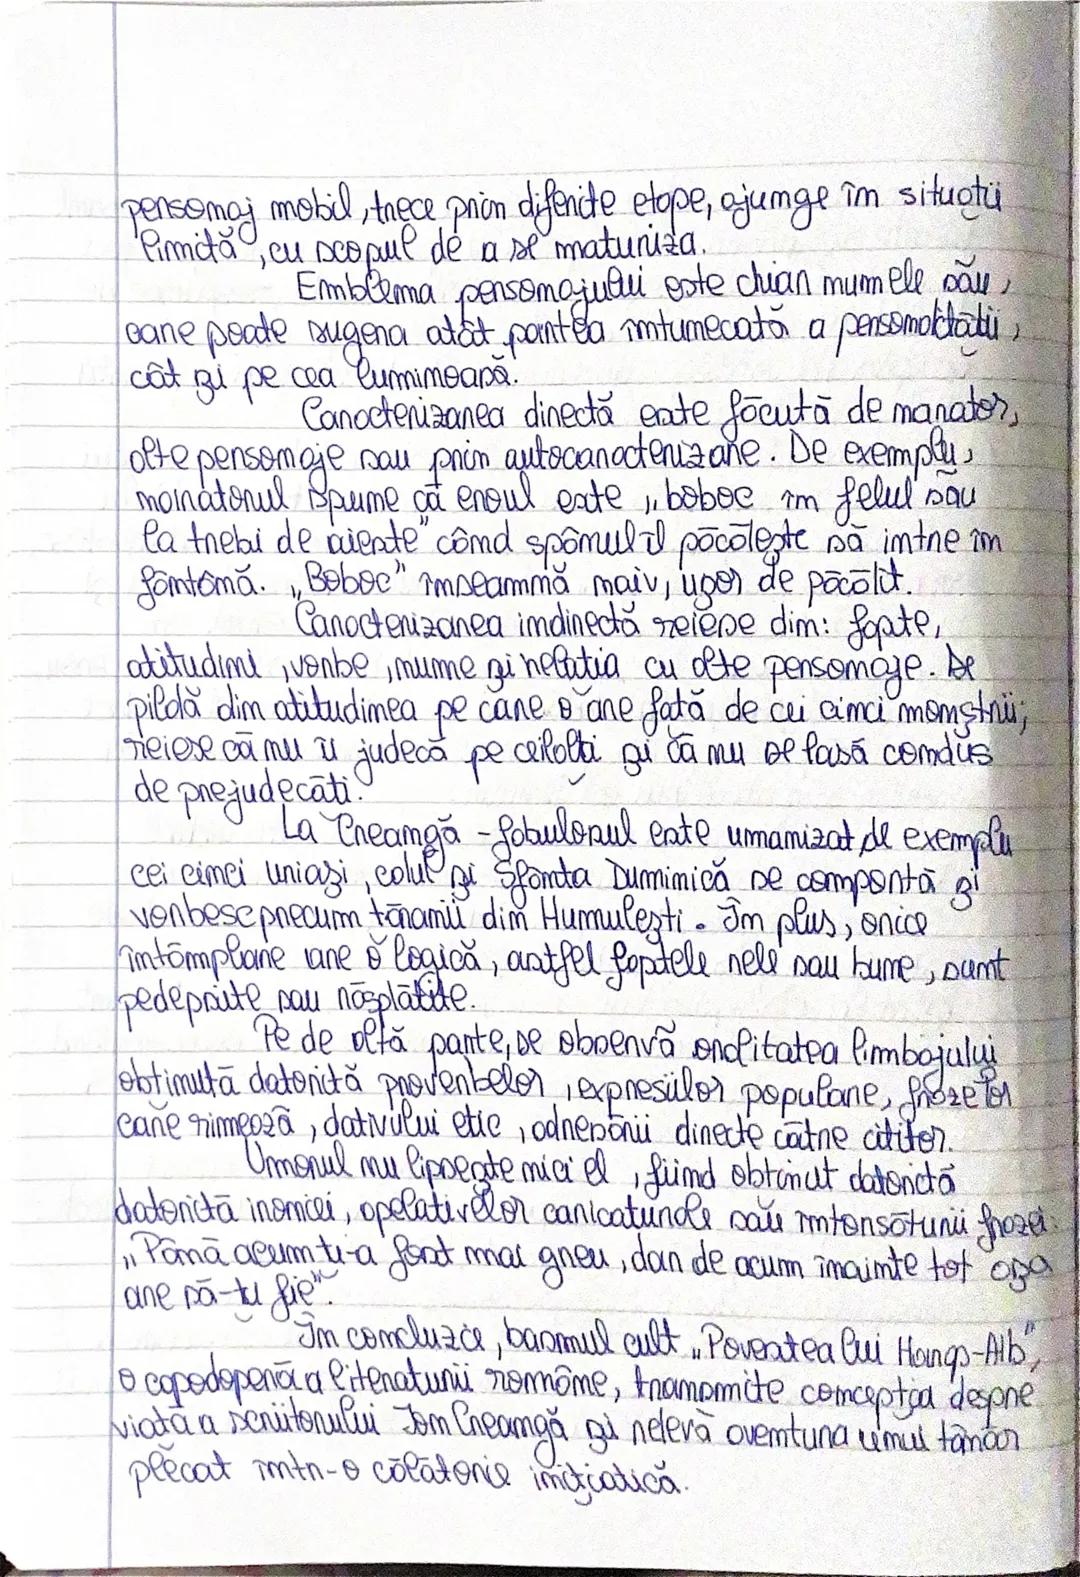 personaj mobil, trece prin diferite etape, ajunge în situații
limită, cu scopul de a se maturiza.
Emblema personajului este chiar numele său,
care poate sugera atât partea întunecată a personalității,
cât și pe cea luminoasă.
Caracterizarea directă este făcută de narator,
alte personaje sau prin autocaracterizare. De exemplu,
naratorul spune că eroul este „boboc în felul său
la trebi de aieste" când spânul îl păcălește să intre în
fântână. „Boboc" înseamnă naiv, ușor de păcălit.
Caracterizarea indirectă reiese din: fapte,
atitudini, vorbe, nume și relația cu alte personaje. De
pildă din atitudinea pe care o are față de cei cinci monștrii,
reiese că nu îi judecă pe ceilalți și că nu se lasă condus
de prejudecăți.
La Creangă - fabulosul este umanizat de exemplu
cei cinci uriași, calul și Sfânta Duminică se comportă și
vorbesc precum țăranii din Humulești. În plus, orice
întâmplare are o logică, astfel faptele rele sau bune, sunt
pedepsite sau răsplătite.
Pe de altă parte, se observă oralitatea limbajului
obținută datorită proverbelor, expresiilor populare, frazelor
care rimează, dativului etic, adresării directe către cititor.
Umorul nu lipsește nici el, fiind obținut datorită
datorită ironiei, apelativelor caricaturale sau întorsăturii frazei:
„Până acum ți-a fost mai greu, dar de acum înainte tot așa
are să-ți fie".
În concluzie, basmul cult „Povestea lui Harap-Alb",
o capodoperă a literaturii române, transmite concepția despre
viață a scriitorului Ion Creangă și relevă aventura unui tânăr
plecat într-o călătorie inițiatică.